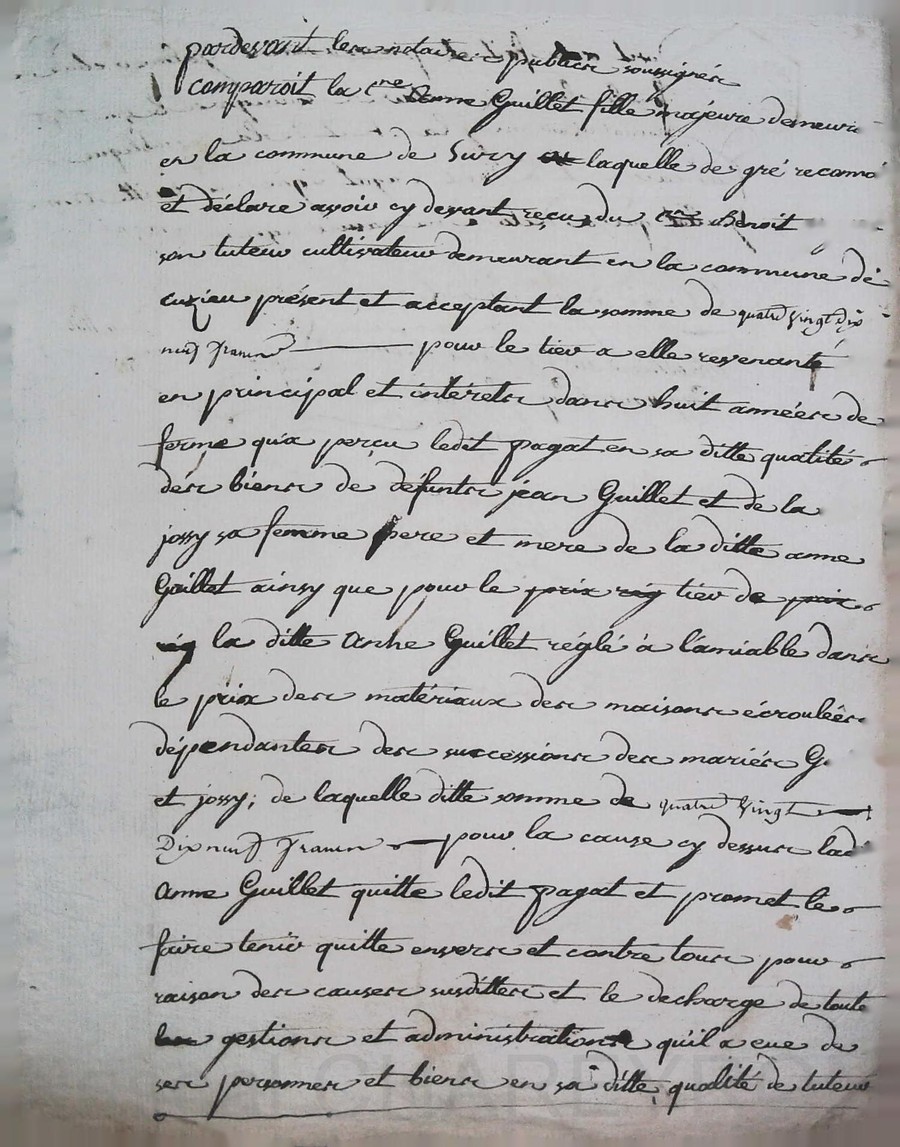 pardevant les notaires publics soussignés
comparoit la cne Anne Guillet fille majeure demeur
en la commune de Surry laquelle de gré reconno
et déclare avoir cy devant reçu du Benoit
son tuteur cultivateur demeurant en la commune de
cuzieu présent et acceptant la somme de quatre vingt dix
neuf francs pour le tier a elle revenante
en principal et intérets dans huit années de
ferme qu'a perçu ledit pagat en sa ditte qualité
des biens de défunts jean Guillet et de la
jossy sa femme pere et mere de la ditte anne
Guillet ainsy que pour le prix tier de prix
la ditte Anne Guillet réglé à l'amiable dans
le prix des matériaux des maisons écroulées
dépendantes des successions des mariés G
et jossy; de laquelle ditte somme de quatre vingt
Dix neuf francs pour la cause cy dessus lad
anne Guillet quitte ledit pagat et promet le
faire tenir quitte envers et contre tous pour
raison des causes susdittes et le decharge de toute
gestions et administrations qu'il a eue de
ses personnes et biens en sa ditte qualité de tuteur